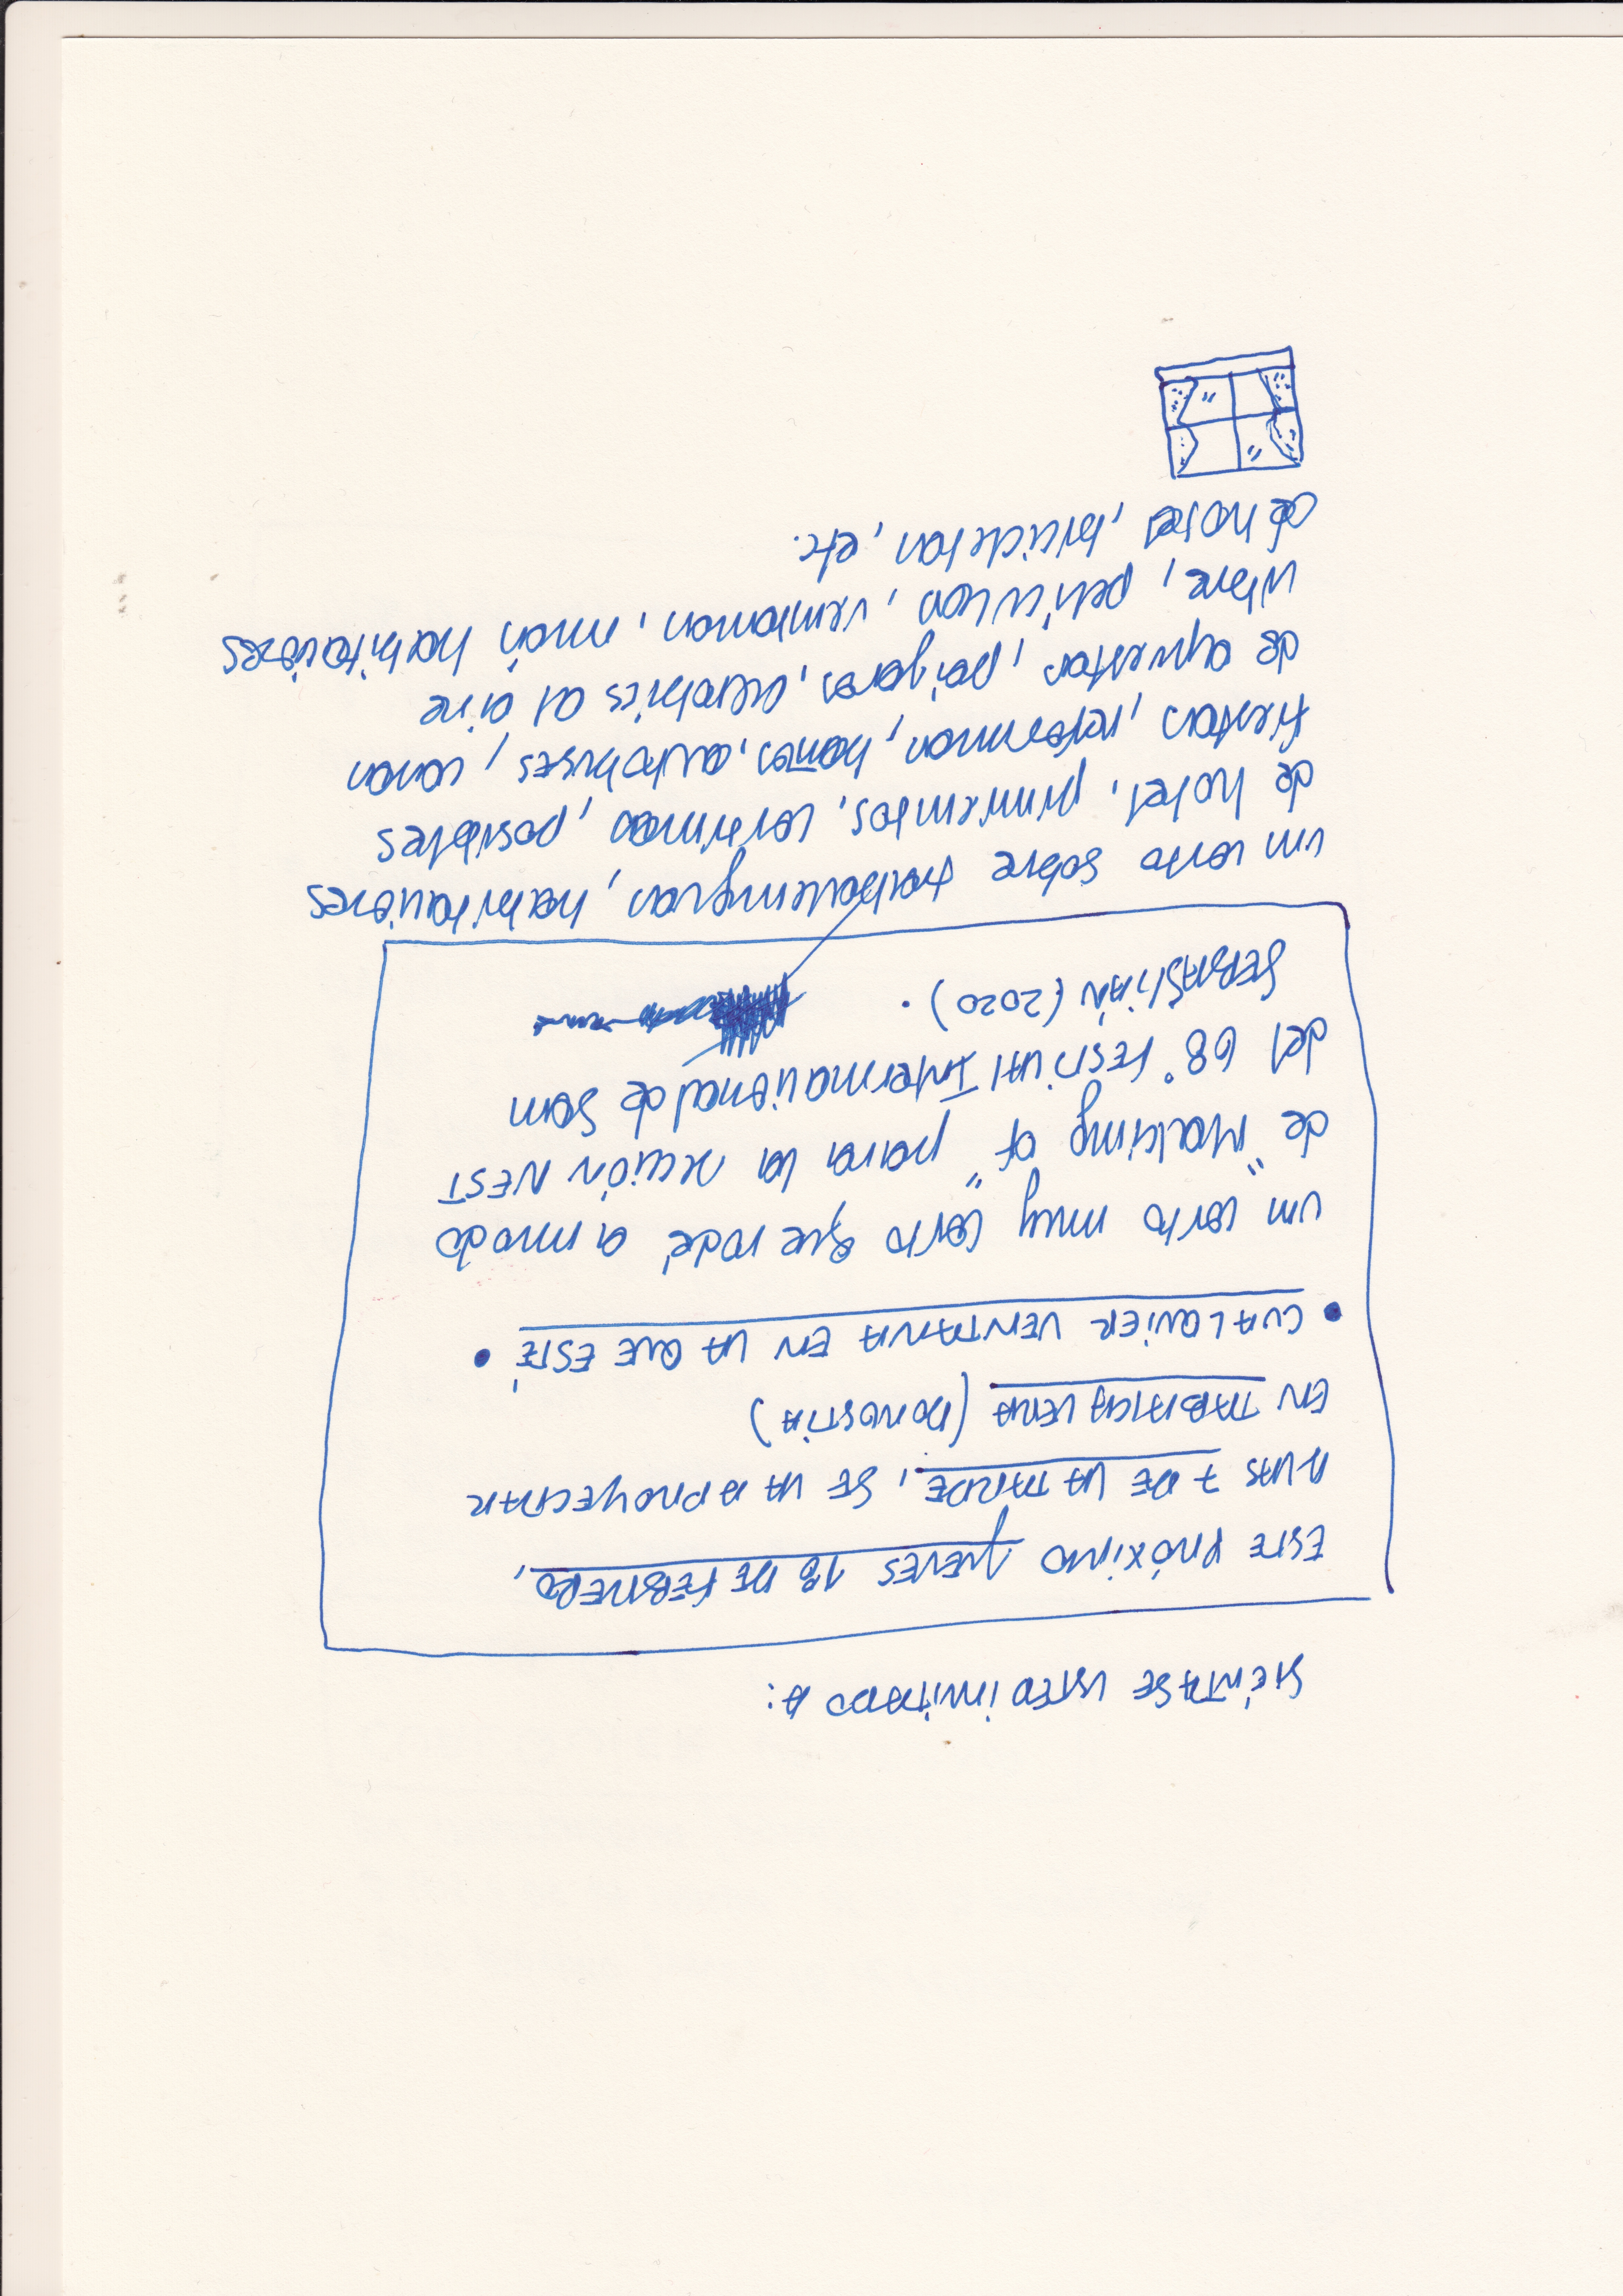 SIÉNTASE USTED INVITADO A:
ESTE PRÓXIMO JUEVES 18 DE FEBRERO,
A LAS 7 DE LA TARDE, SE VA A PROYECTAR
EN TABAKALERA (DONOSTIA)
• CUALQUIER VENTANA EN LA QUE ESTÉ •
un corto muy corto que rodé a modo
de "Making of" para la sección NEST
del 68º FESTIVAL Internacional de San
SEBASTIÁN (2020).
un corto sobre habitaciones
de hotel, pimientos, cortinas, posibles
fiestas, personas, baños, autobuses, cosas
de apuestas, pájaros, acrobacias al aire
libre, películas, ventanas, más habitaciones
de hotel, bicicletas, etc.